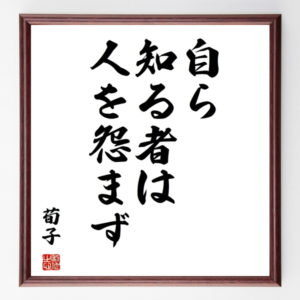 自ら
知る者は
人を怨まず
荀子